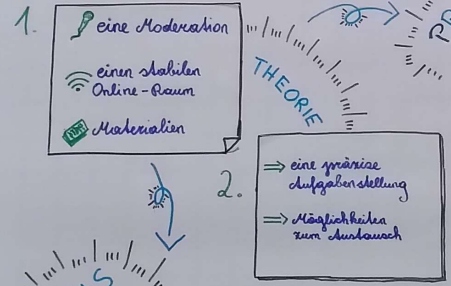 1.
eine Moderation
einen stabilen
Online-Raum
Materialien
THEORIE
2.
eine präzise
Aufgabenstellung
Möglichkeiten
zum Austausch